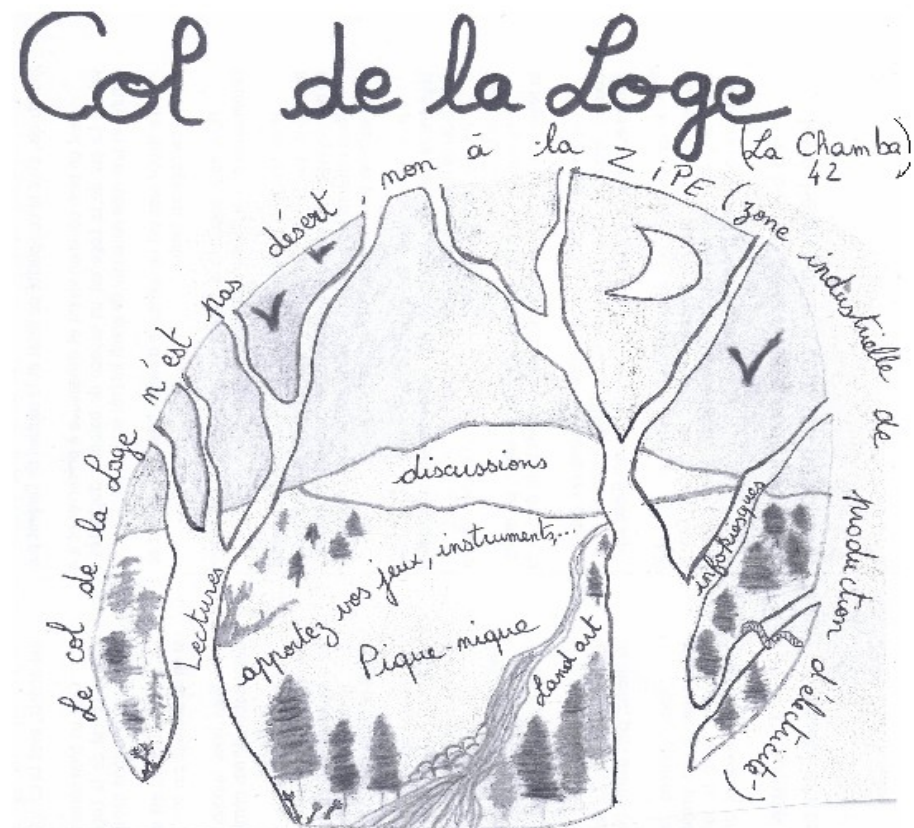 Col de la Loge
(La Chamba)
42
Le col de la Loge n'est pas désert, non à la ZiPE (zone industrielle de production d'électricité)
discussions
apportez vos jeux, instruments,...
Pique-nique
Lectures
Land art
infokiosques